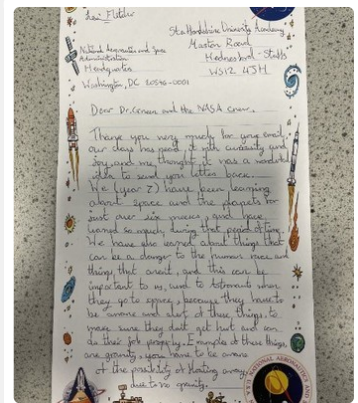 Levi Fletcher
Staffordshire University Academy
Marston Road
Hednesford - Staffs
WS12 4JH
National Aeronautics and Space
Administration
Headquarters
Washington, DC 20546-0001
Dear Dr. and the NASA crew,
Thank you very much for your email,
our class has read it with curiosity and
Joy and we thought it was a wonderful
idea to send you letters back.
We (year 7) have been learning
about space and the planets for
just over six weeks, and have
learned so much during that period of time.
We have also learned about things that
can be a danger to the human race, and
things that aren't, and this can be
important to us, and to astronauts when
they go to space, because they have to
be aware and alert of these things, to
make sure they don't get hurt and can
do their job properly. Examples of these things
are gravity, you have to be aware
of the possibility of floating away
due to no gravity.
NATIONAL AERONAUTICS AND